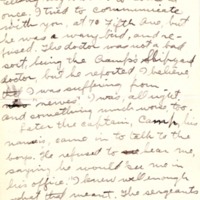 once. I tried to communicate
with you, at 70 Fifth Ave. but
he was a wary bird, and re-
fused. The doctor was not a bad
sort, being the Camp's Shipyard
doctor, but he reported I believe,
I was suffering from
"nerves". I was alright,
and something much more too.
Later the captain, Camp, his
name, came in to talk to the
boys. He refused to hear me,
saying he would "see me in
his office." I knew well enough
what that meant. The sergeants